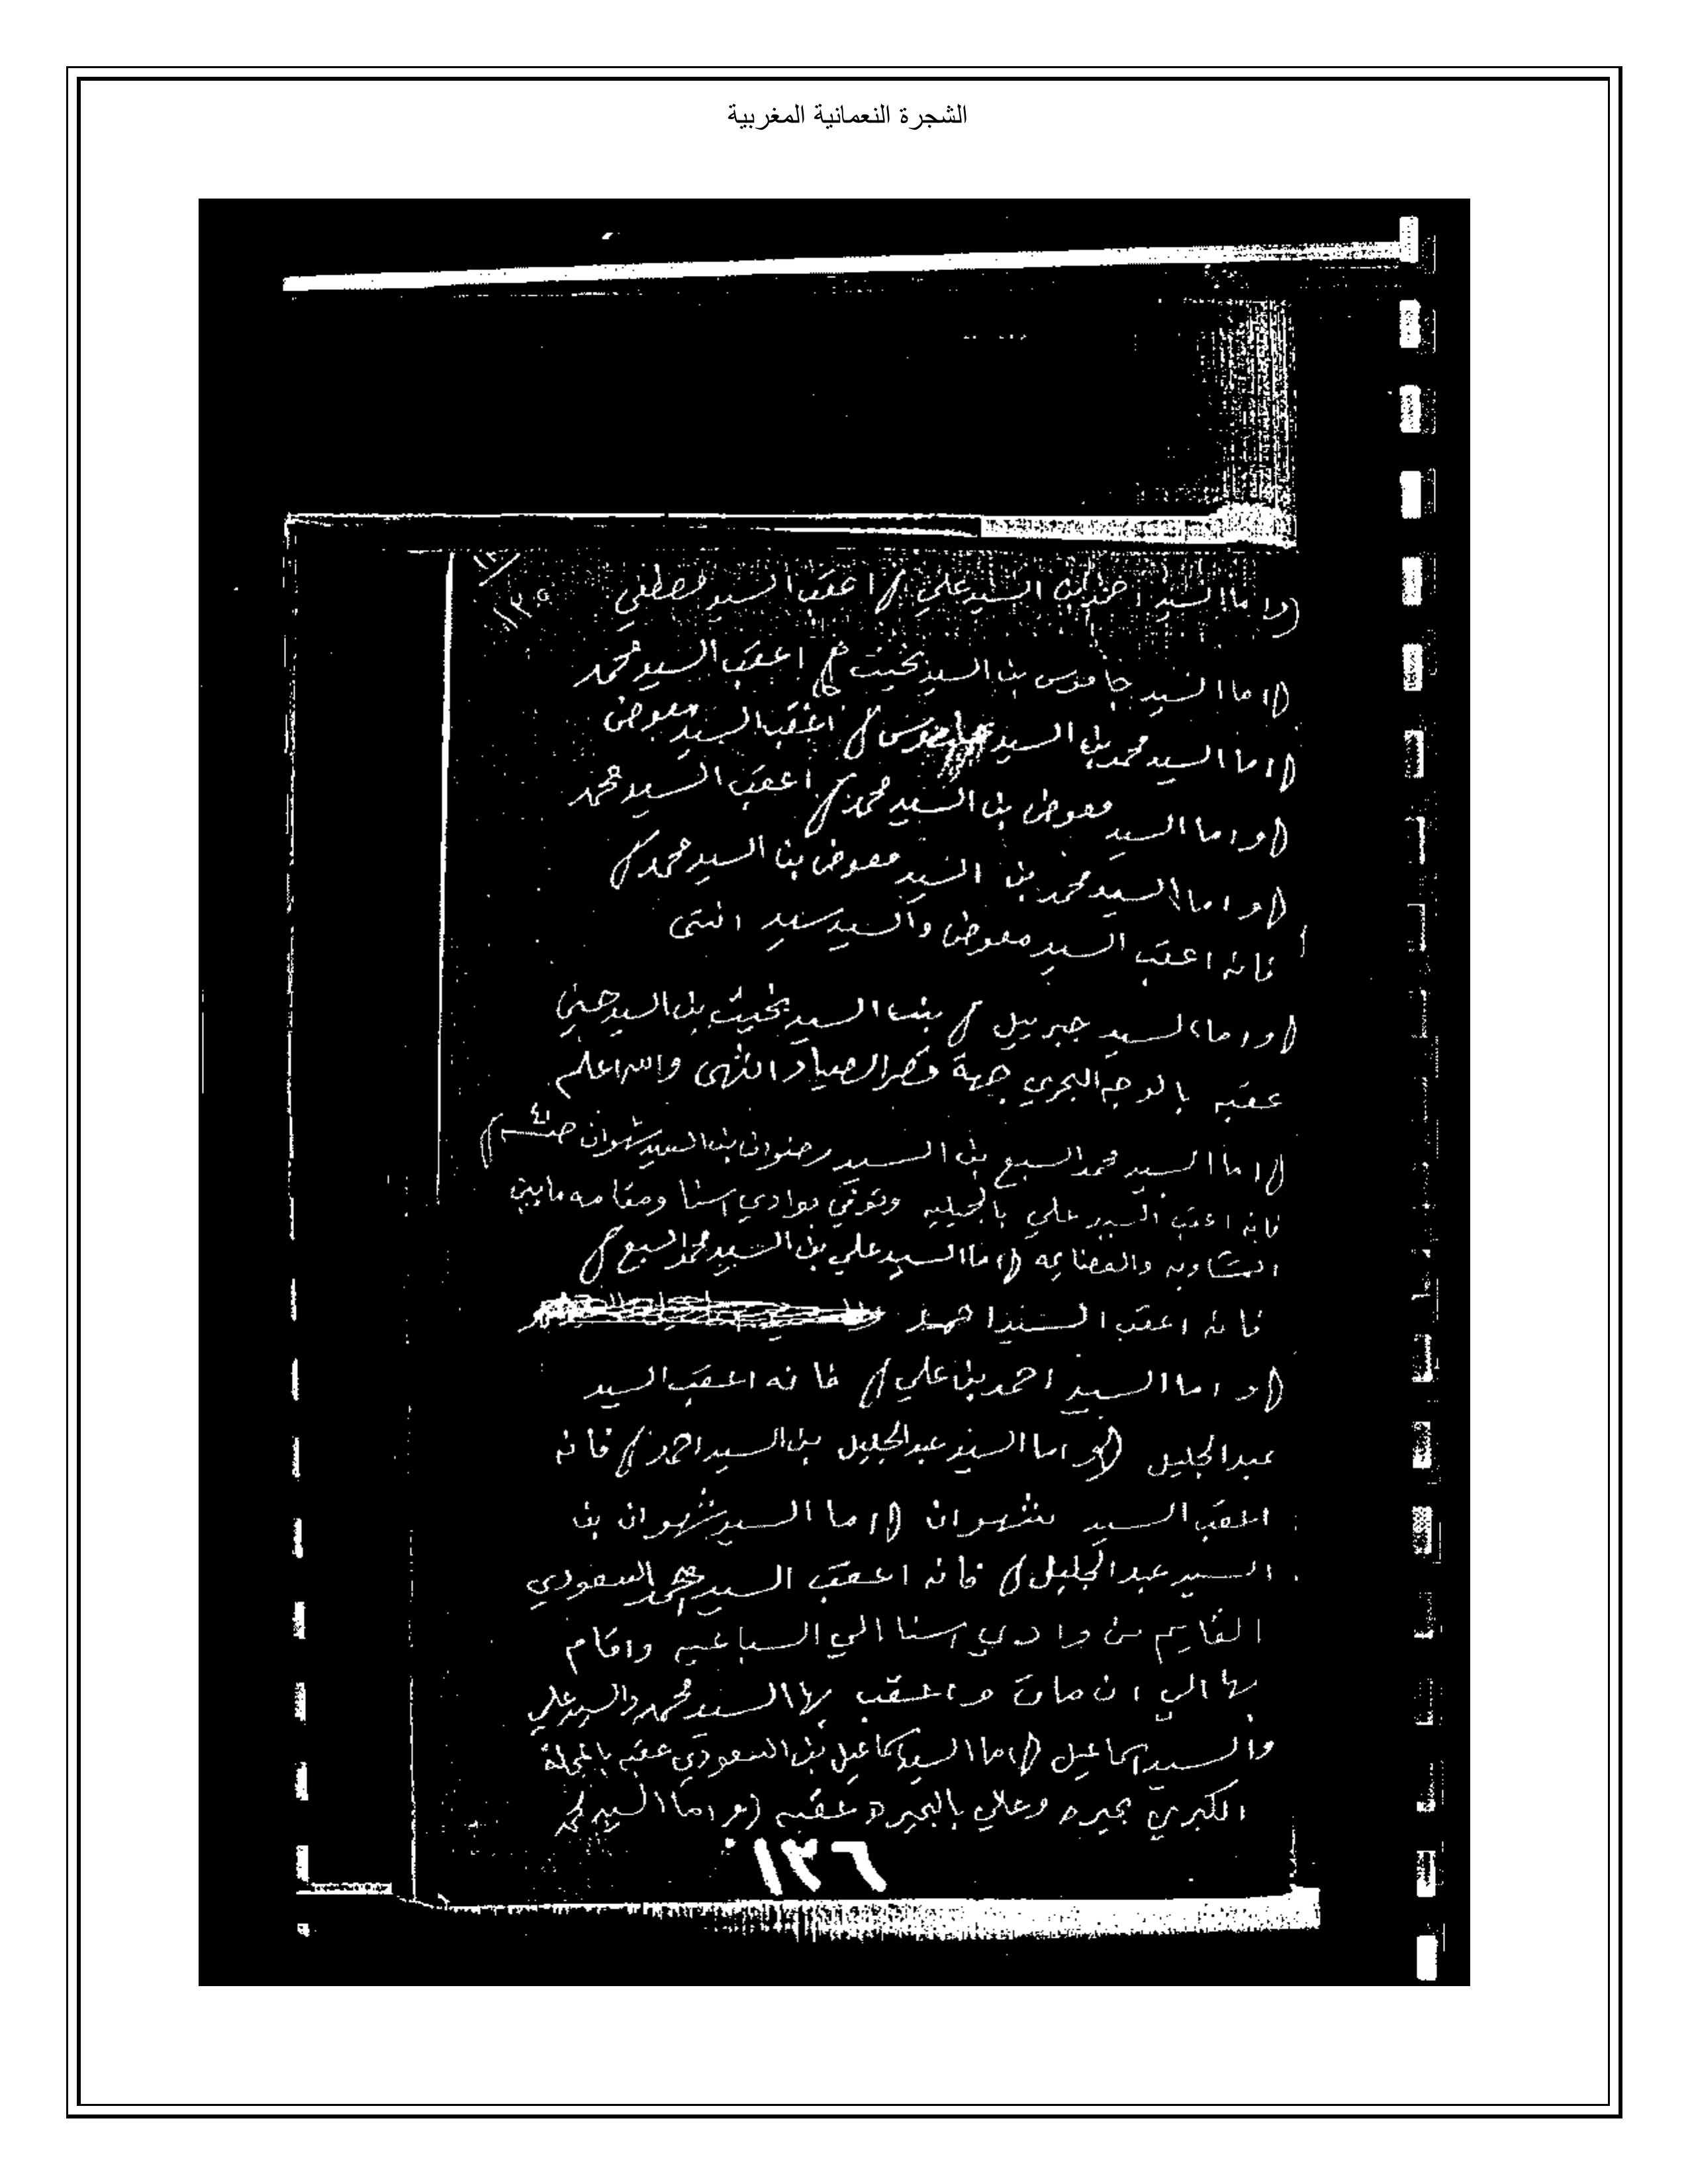 الشجرة النعمانية المغربية
١٢٥
(واما السيد احمد بن السيد علي) اعقب السيد مصطفي
(اما السيد جاموس بن السيد بخيت) اعقب السيد محمد
(اما السيد محمد بن السيد جاموس) اعقب السيد معوض
(واما السيد معوض بن السيد محمد) اعقب السيد محمد
(واما السيد محمد بن السيد معوض بن السيد محمد)
فانه اعقب السيد معوض والسيد سيد انتهى
(واما السيد جبريل) بن السيد بخيت بن السيد
عقبه بالوجه البحري جهة قصر الصياد انتهى والله اعلم
(اما السيد محمد السبع بن السيد رضوان بن السيد شهوان
فانه اعقب السيد علي وتوفي بوادي اسنا ومقامه مابين
اما السيد علي بن السيد محمد السبع)
فانه اعقب السيد احمد
(واما السيد احمد بن علي) فانه اعقب السيد
عبد الجليل (واما السيد عبد الجليل بن السيد احمد) فانه
اعقب السيد شهوان (اما السيد شهوان بن
السيد عبد الجليل) فانه اعقب السيد محمد السعودي
القايم من وادي اسنا الي السباعيه واقام
بها الي ان مات واعقب بها السيد محمد والسيد علي
والسيد اسماعيل (اما السيد اسماعيل بن السعودي عقبه بالمحلة
الكبري بحيره وعلي بالبحيره عقبه (واما السيد محمد
١٢٦